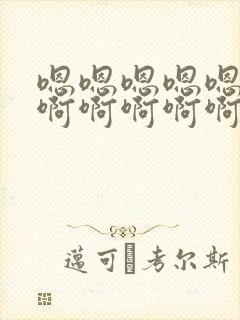 嗯嗯嗯嗯嗯
啊啊啊啊啊
邁可�考尔斯